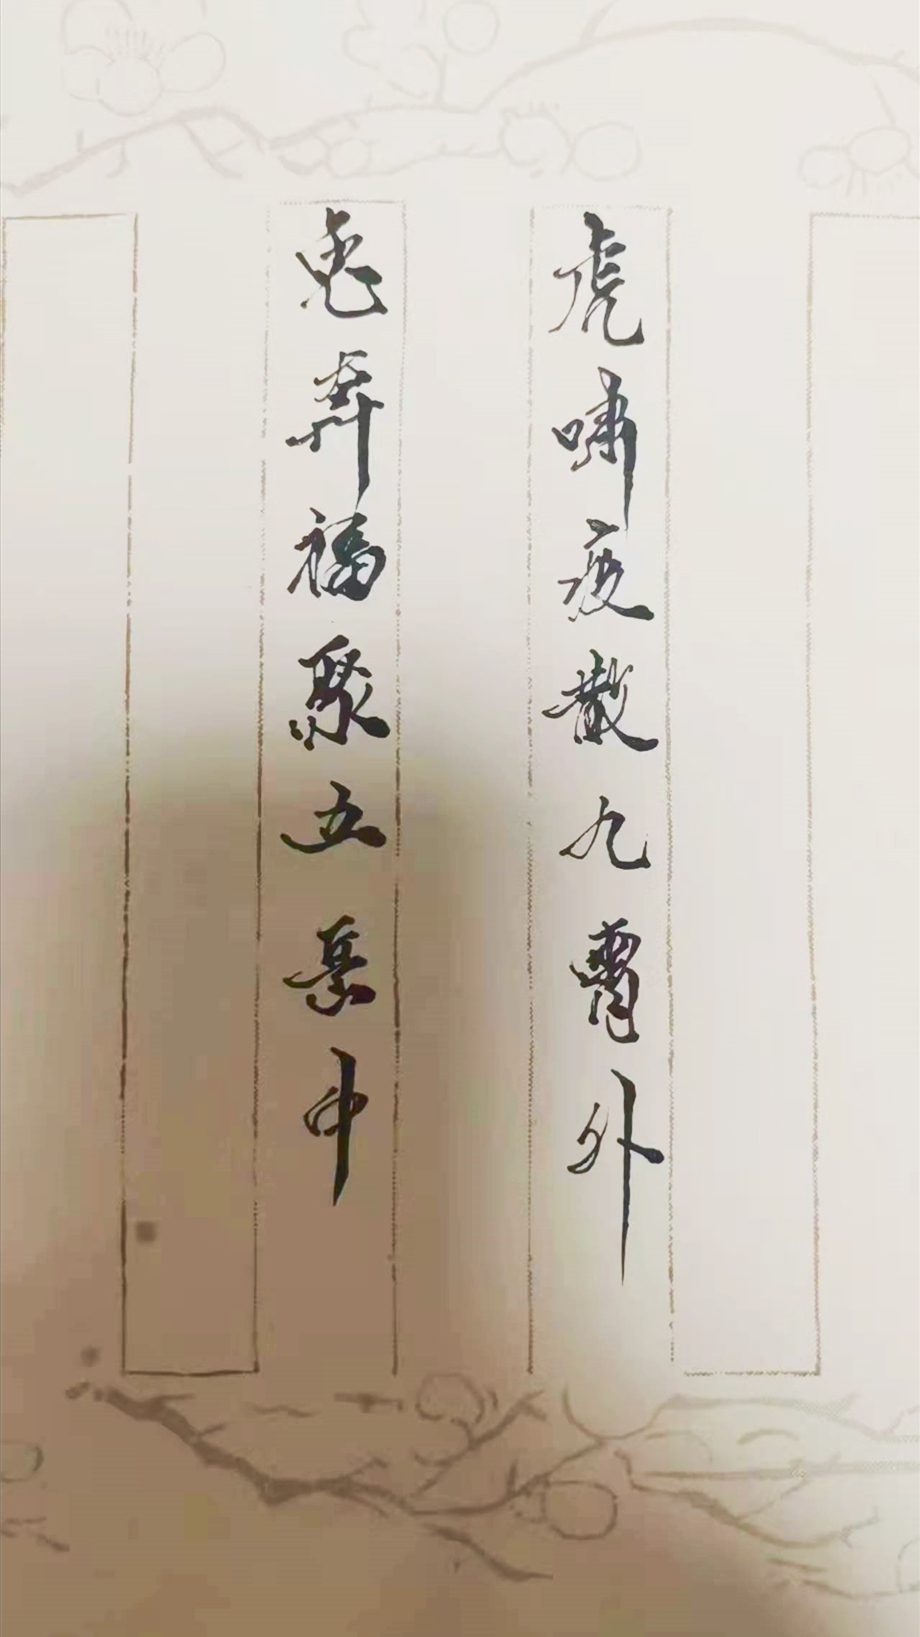 虎啸疫散九霄外
兎奔福聚五岳中